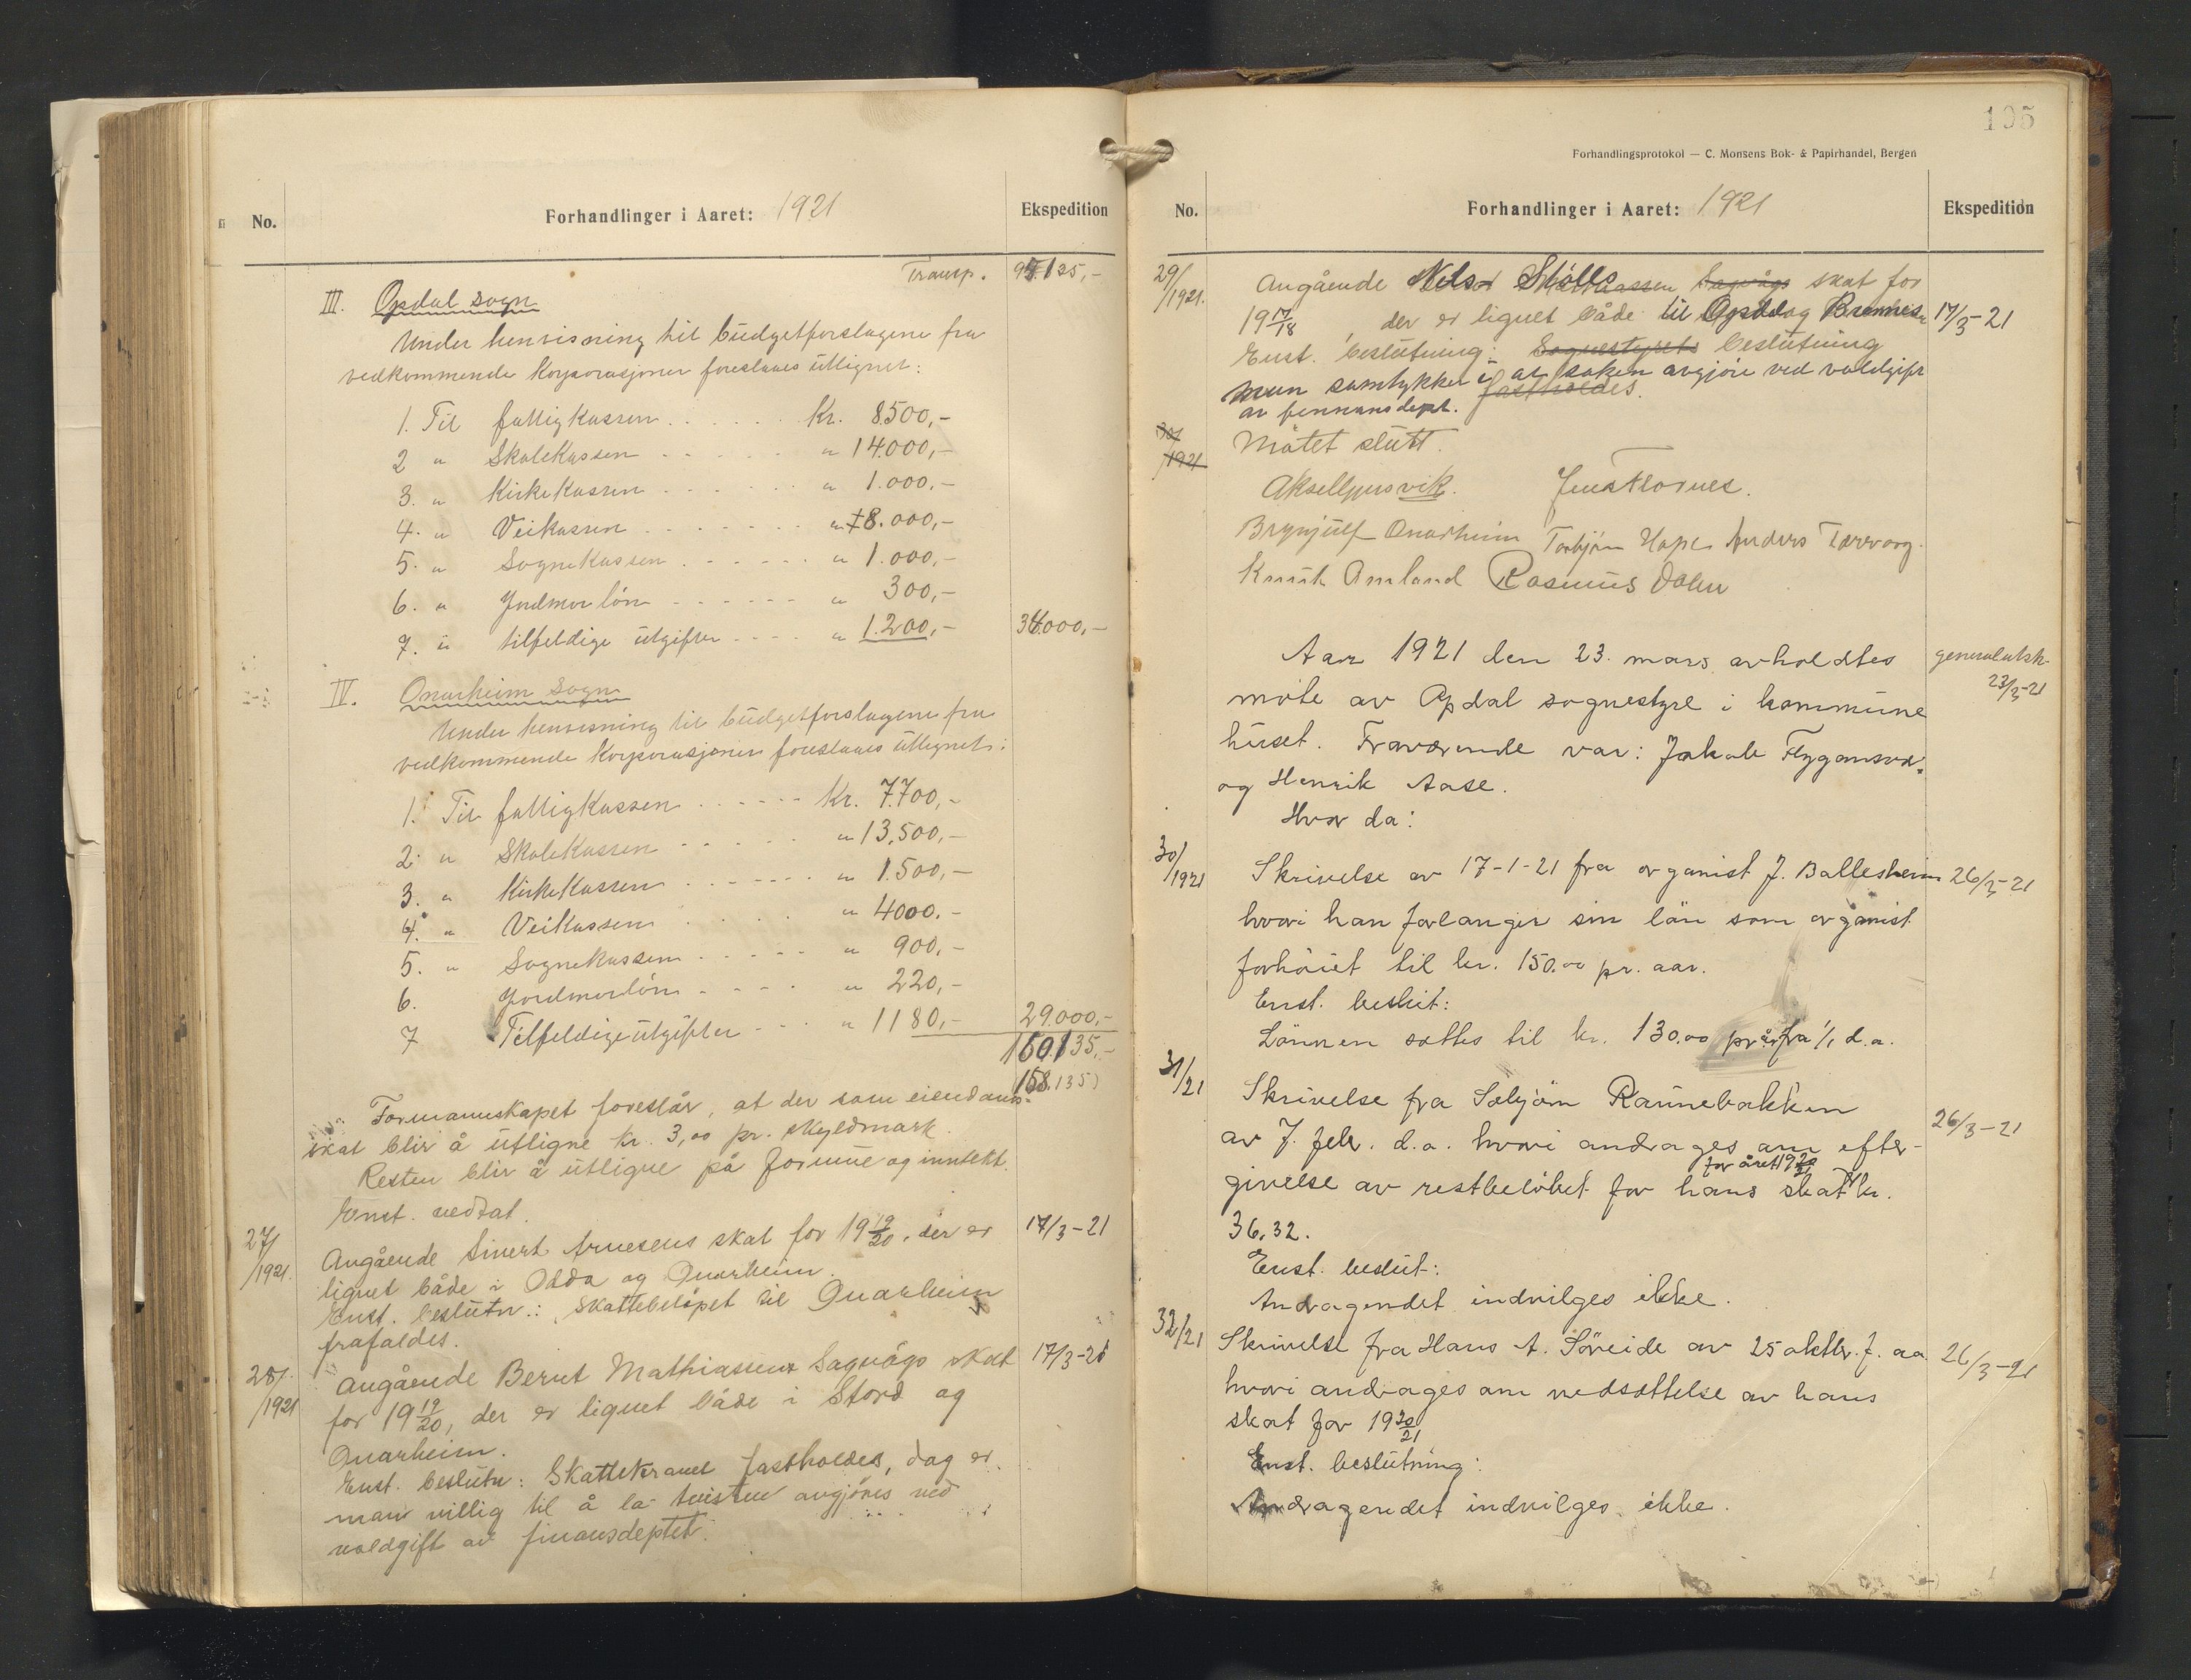 No.
Forhandlinger i Aaret: 1921
Ekspedition
Transp. 95135,-
III. Opdal sogn
Under henvisning til budgetforslagene fra
vedkommende Korporasjoner foreslaaes utlignet:
1. Til fattigkassen . . . . . . Kr. 8500,-
2 " Skolekassen . . . . . " 14.000,-
3. " Kirkekassen . . . . . . " 1.000.-
4. " Veikassen . . . . . . . " 8.000,-
5. " Sognekassen . . . . . . " 1.000,-
6. " Jordmorløn . . . . . . " 300,-
7. " tilfeldige utgifter . . . . " 1.200,- 34.000,-
IV. Onarheim Sogn
Under henvisning til budgetforslagene fra
vedkommende Korporasjoner foreslaaes utlignet:
1. Til fattigkassen . . . . . . Kr. 7.700,-
2. " Skolekassen . . . . . " 13.500,-
3. " Kirkekassen . . . . . . . " 1.500,-
4. " Veikassen . . . . . " 4000.-
5. " Sognekassen . . . . . " 900,-
6. Jordmorløn . . . . " 220,-
7 Tilfeldige utgifter . . . " 1180,- 29.000,-
158.135)
Formannskapet foreslår, at der som eiendoms-
skat blir å utligne kr. 3,00 pr. skyldmark.
Resten blir å utligne på formue og inntekt.
Enst. vedtat.
27/1921. Angående Sivert Arnesens skat for 19 19/20, der er 17/3-21
lignet både i Odda og Onarheim.
Enst. beslutn.: Skattebeløpet til Onarheim
frafaldes.
28/1921 Angående Bernt Mathiassen Sagvågs skat 17/3-21
for 19 19/20, der er lignet både i Stord og
Onarheim.
Enst. beslutn: Skattekravet fastholdes, dog er
man villig til å la tvisten avgjøres ved
voldgift av finansdeptet.
105
Forhandlingsprotokol — C. Monsens Bok- & Papirhandel, Bergen
No.
Forhandlinger i Aaret: 1921
Ekspedition
29/1921. Angående Nels Stølls skat for
19 17/18, der er lignet både til Opdal og Bremnes 17/3-21
Enst. beslutning: Sognestyrets beslutning
man samtykker i at saken avgjøre ved voldgift
av finnansdept. fastholdes.
30/1921 Møtet slutt.
Aksel Gjersvik. Jens Flornes.
Brynjulf Onarheim Torbjørn Hope Anders Tærvaag.
Knut Amland Rasmus Dalen
Aar 1921 den 23. mars avholdtes generalutsk.
møte av Opdal sognestyre i kommune 23/3-21
huset. Fraværende var: Jakob Flygansvær
og Henrik Aase.
Hvor da:
30/1921 Skrivelse av 17-1-21 fra organist J. Ballesheim 26/3-21
hvori han forlanger sin løn som organist
forhøiet til kr. 150.00 pr. aar.
Enst. beslut:
Lønnen sættes til kr. 130.00 pr år fra 1/1 d.a.
31/21 Skrivelse fra Sæbjørn Raunebakken
av 7. febr. d.a. hvori andrages om efter- 26/3-21
givelse av restbeløbet for hans skat for året 19 20/21 kr.
36.32.
Enst. beslut:
Andragendet indvilges ikke.
32/21 Skrivelse fra Hans A. Søreide av 25 oktbr. f. aa. 26/3-21
hvori andrages om nedsættelse av hans
skat for 19 20/21
Enst. beslutning:
Andragendet indvilges ikke.